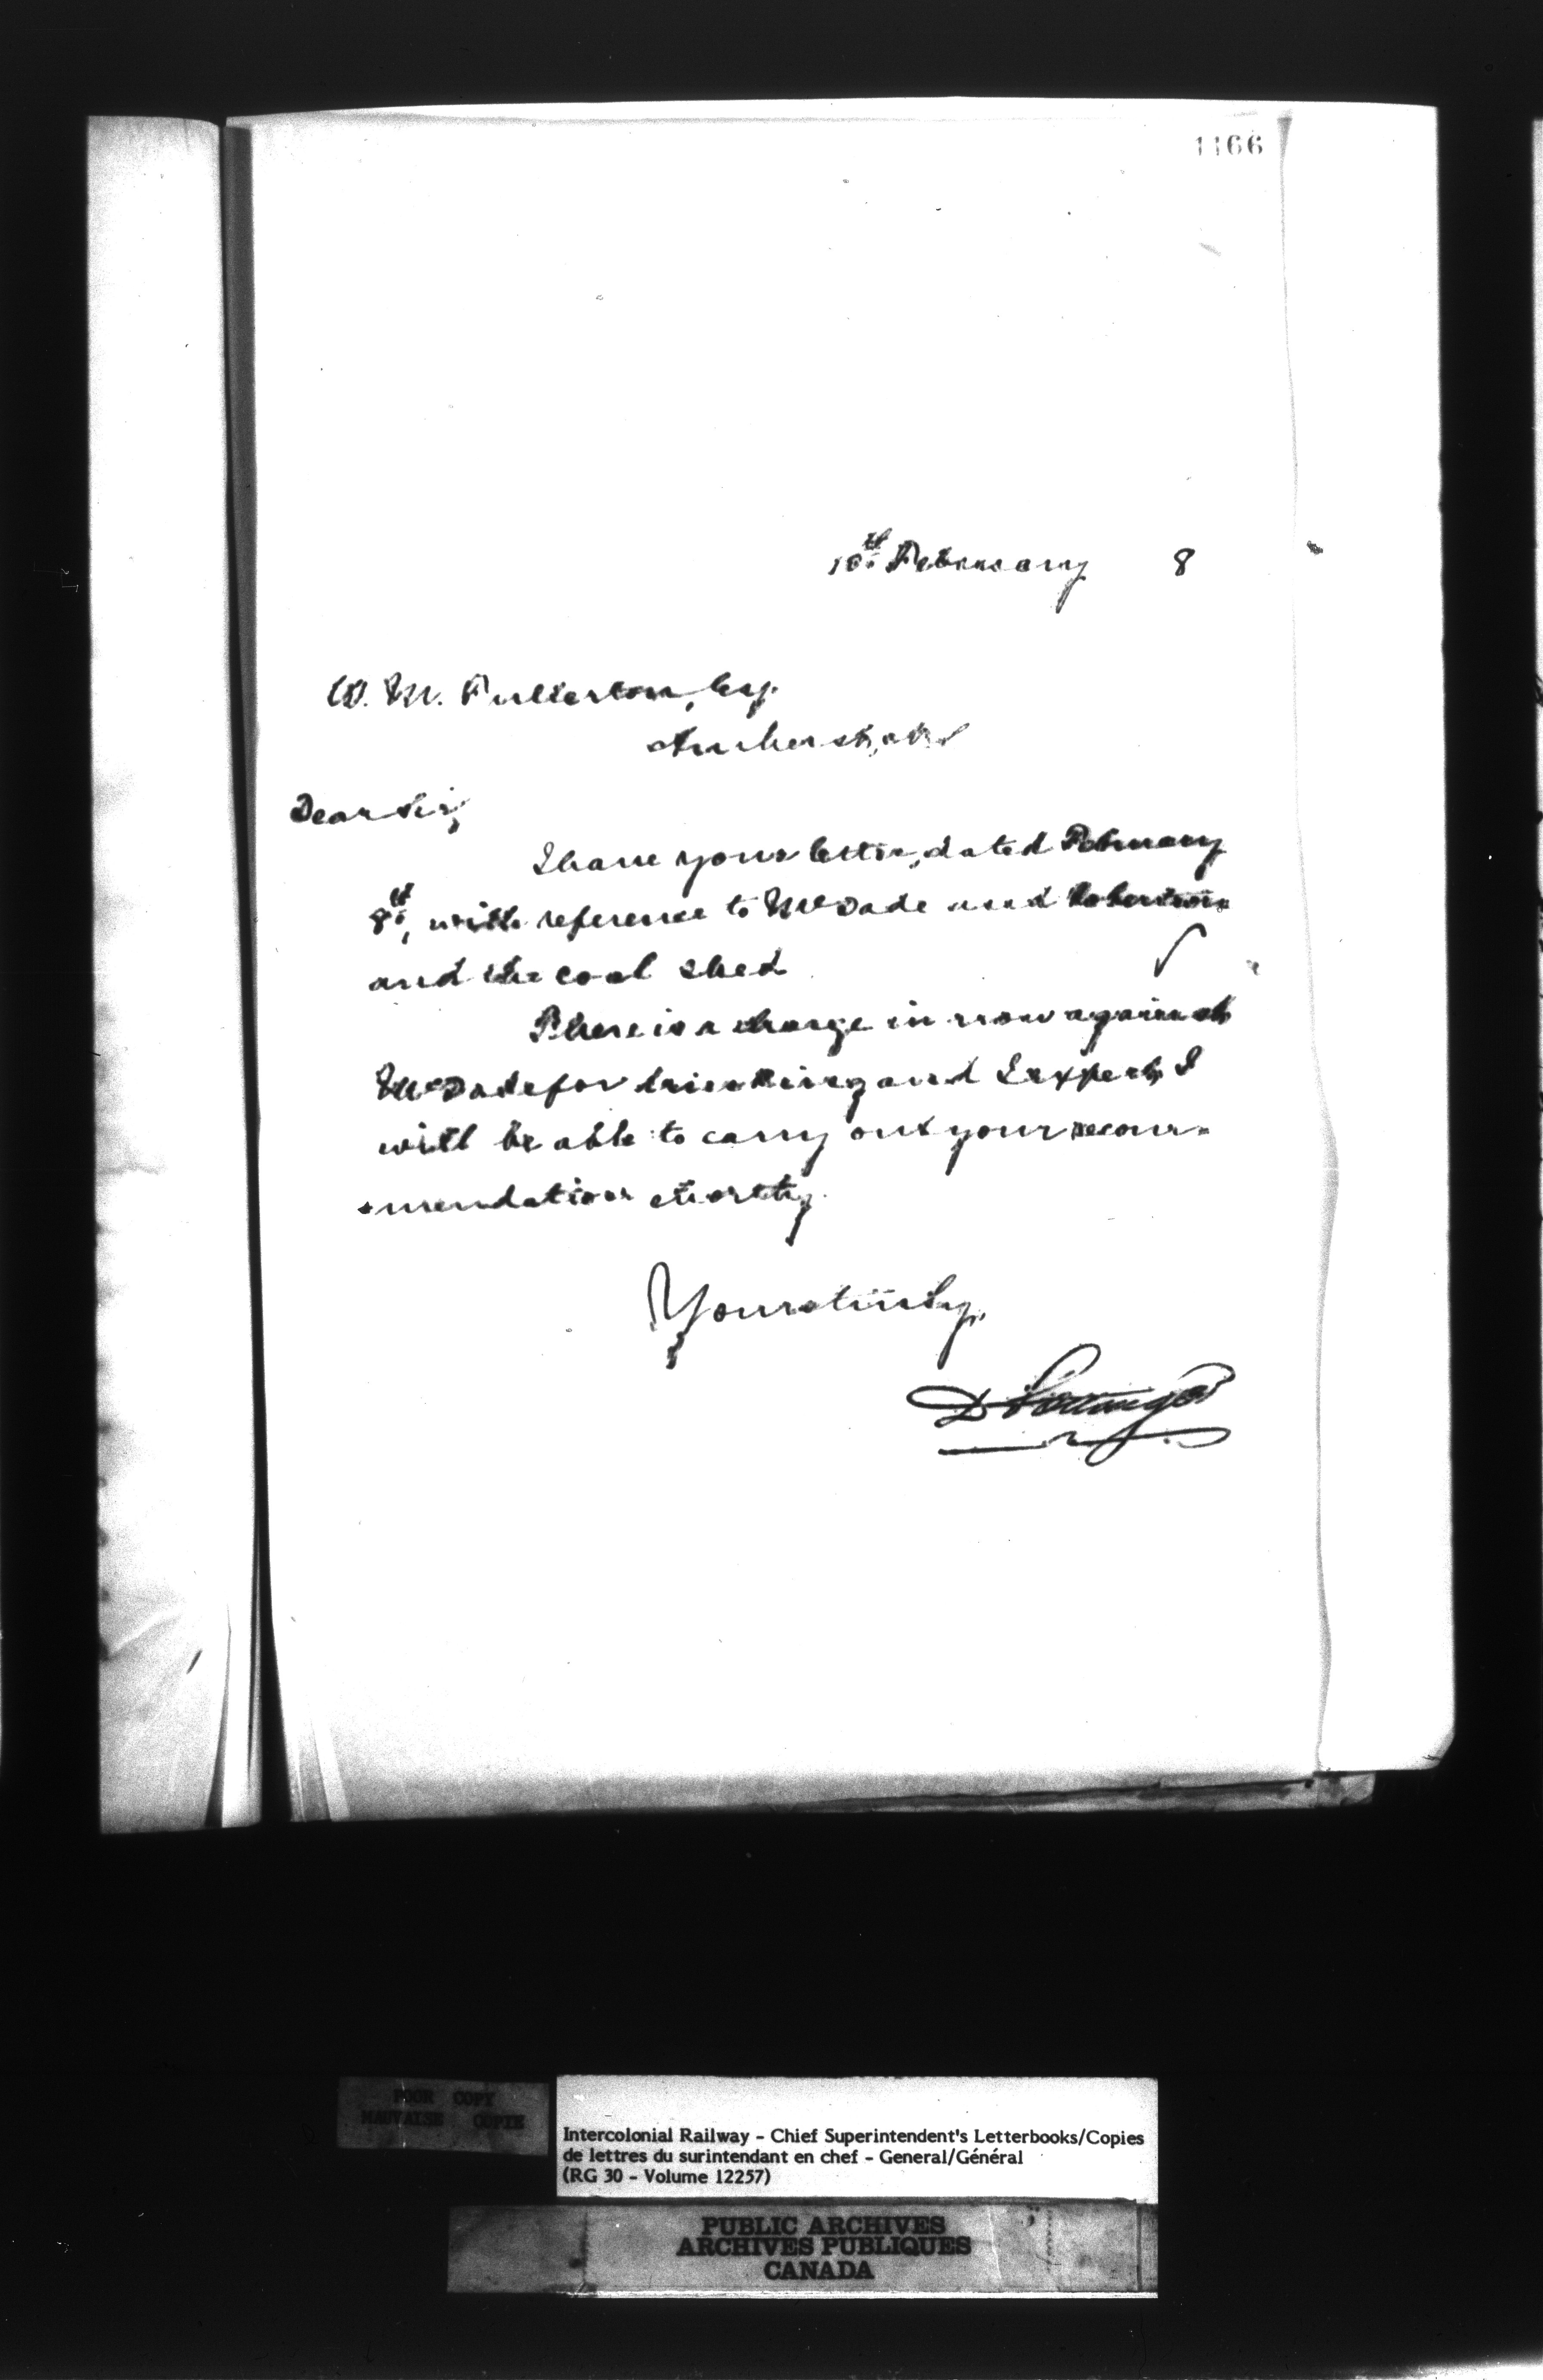 1166
10th February 8
W. M. Fullerton, Esq.
Amherst, N.S.
Dear Sir,
I have your letter, dated February
8th, with reference to McDade and Robertson
and the coal shed
There is a charge in now against
McDade for drinking and I expect I
will be able to carry out your recom-
-mendation shortly.
Yours truly,
D Pottinger
POOR COPY
MAUVAISE COPIE
Intercolonial Railway - Chief Superintendent's Letterbooks/Copies
de lettres du surintendant en chef - General/Général
(RG 30 - Volume 12257)
PUBLIC ARCHIVES
ARCHIVES PUBLIQUES
CANADA